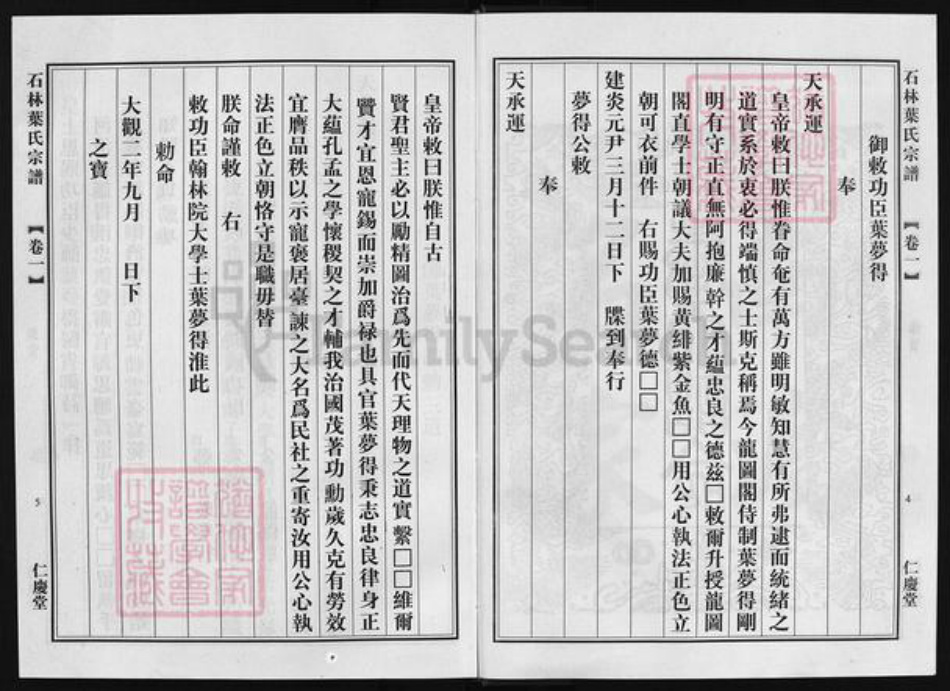 石林葉氏宗譜 【卷一】 4 仁慶堂
御敕功臣葉夢得
奉
天承運
皇帝敕曰朕惟眷命奄有萬方雖明敏知慧有所弗逮而統緒之
道實系於衷必得端慎之士斯克稱焉今龍圖閣侍制葉夢得剛
明有守正直無阿抱廉幹之才蘊忠良之德茲□敕爾升授龍圖
閣直學士朝議大夫加賜黃緋紫金魚□□用公心執法正色立
朝可衣前件 右賜功臣葉夢德□□
建炎元尹三月十二日下 牒到奉行
夢得公敕
奉
天承運
皇帝敕曰朕惟自古
賢君聖主必以勵精圖治爲先而代天理物之道實繫□□維爾
贒才宜恩寵錫而崇加爵禄也具官葉夢得秉志忠良律身正
大蘊孔孟之學懷稷契之才輔我治國茂著功勳歲久克有勞效
宜膺品秩以示寵褒居臺諫之大名爲民社之重寄汝用公心執
法正色立朝恪守是職毋替
朕命謹敕 右
敕功臣翰林院大學士葉夢得淮此
勅命
大觀二年九月 日下
之寶
石林葉氏宗譜 【卷一】 5 仁慶堂
FamilySearch